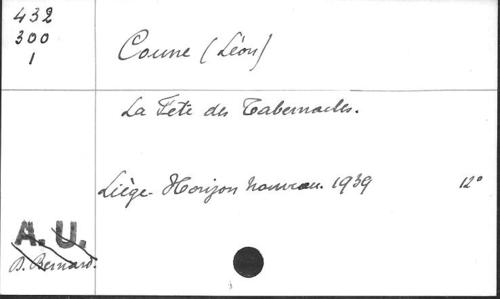 432
300
1
Coune (Léon)
La Fête des Tabernacles.
Liège - Horizon nouveau. 1939 12°
A. U.
B. Bernard.